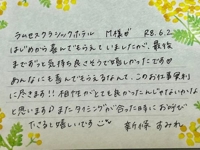 ラムセスクラシックホテル M様♂ R8.6.2
はじめから喜んでもらえていましたが、最後
まですっと気持ち良さそうで嬉しかったですね
めんなにも喜んでもらえるなんて、このお仕事冥利
に尽きます!! 相性がとても良かったんじゃないかな
と思います♪ またタイミングが合った時にお呼び
だてると嬉しいです
新條 すみれ